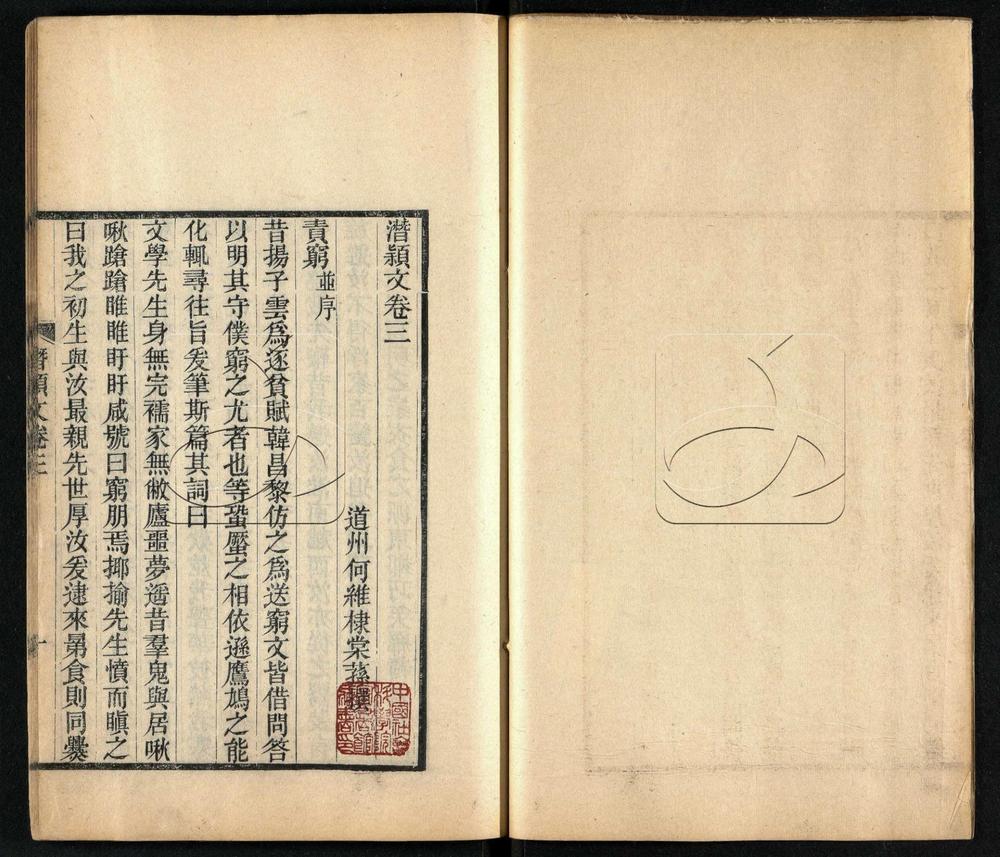 潛穎文卷三
道州何維棣棠蓀撰
責窮並序
昔揚子雲爲逐貧賦韓昌黎仿之爲送窮文皆借問答
以明其守僕窮之尤者也等蛩蟨之相依遜鷹鳩之能
化輒尋往旨爰筆斯篇其詞曰
文學先生身無完襦家無敝廬噩夢遹昔羣鬼與居啾
啾蹌蹌睢睢盱盱咸號曰窮朋焉揶揄先生憤而瞋之
曰我之初生與汝最親先世厚汝爰逮來晜食則同爨
潛穎文卷三
一